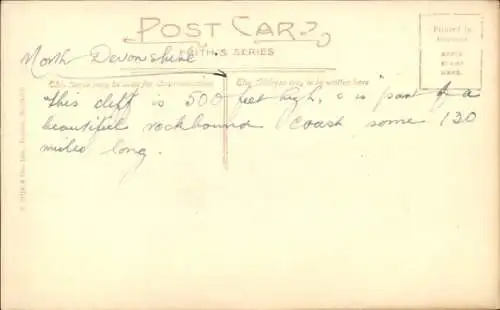 POST CARD
FRITH'S SERIES
Printed in
AFFIX
STAMP
HERE.
North Devonshire.
This Space may be used for Communication
The Address only to be written here
This cliff is 500 feet high, & is part of a
beautiful rockbound coast some 130
miles long.